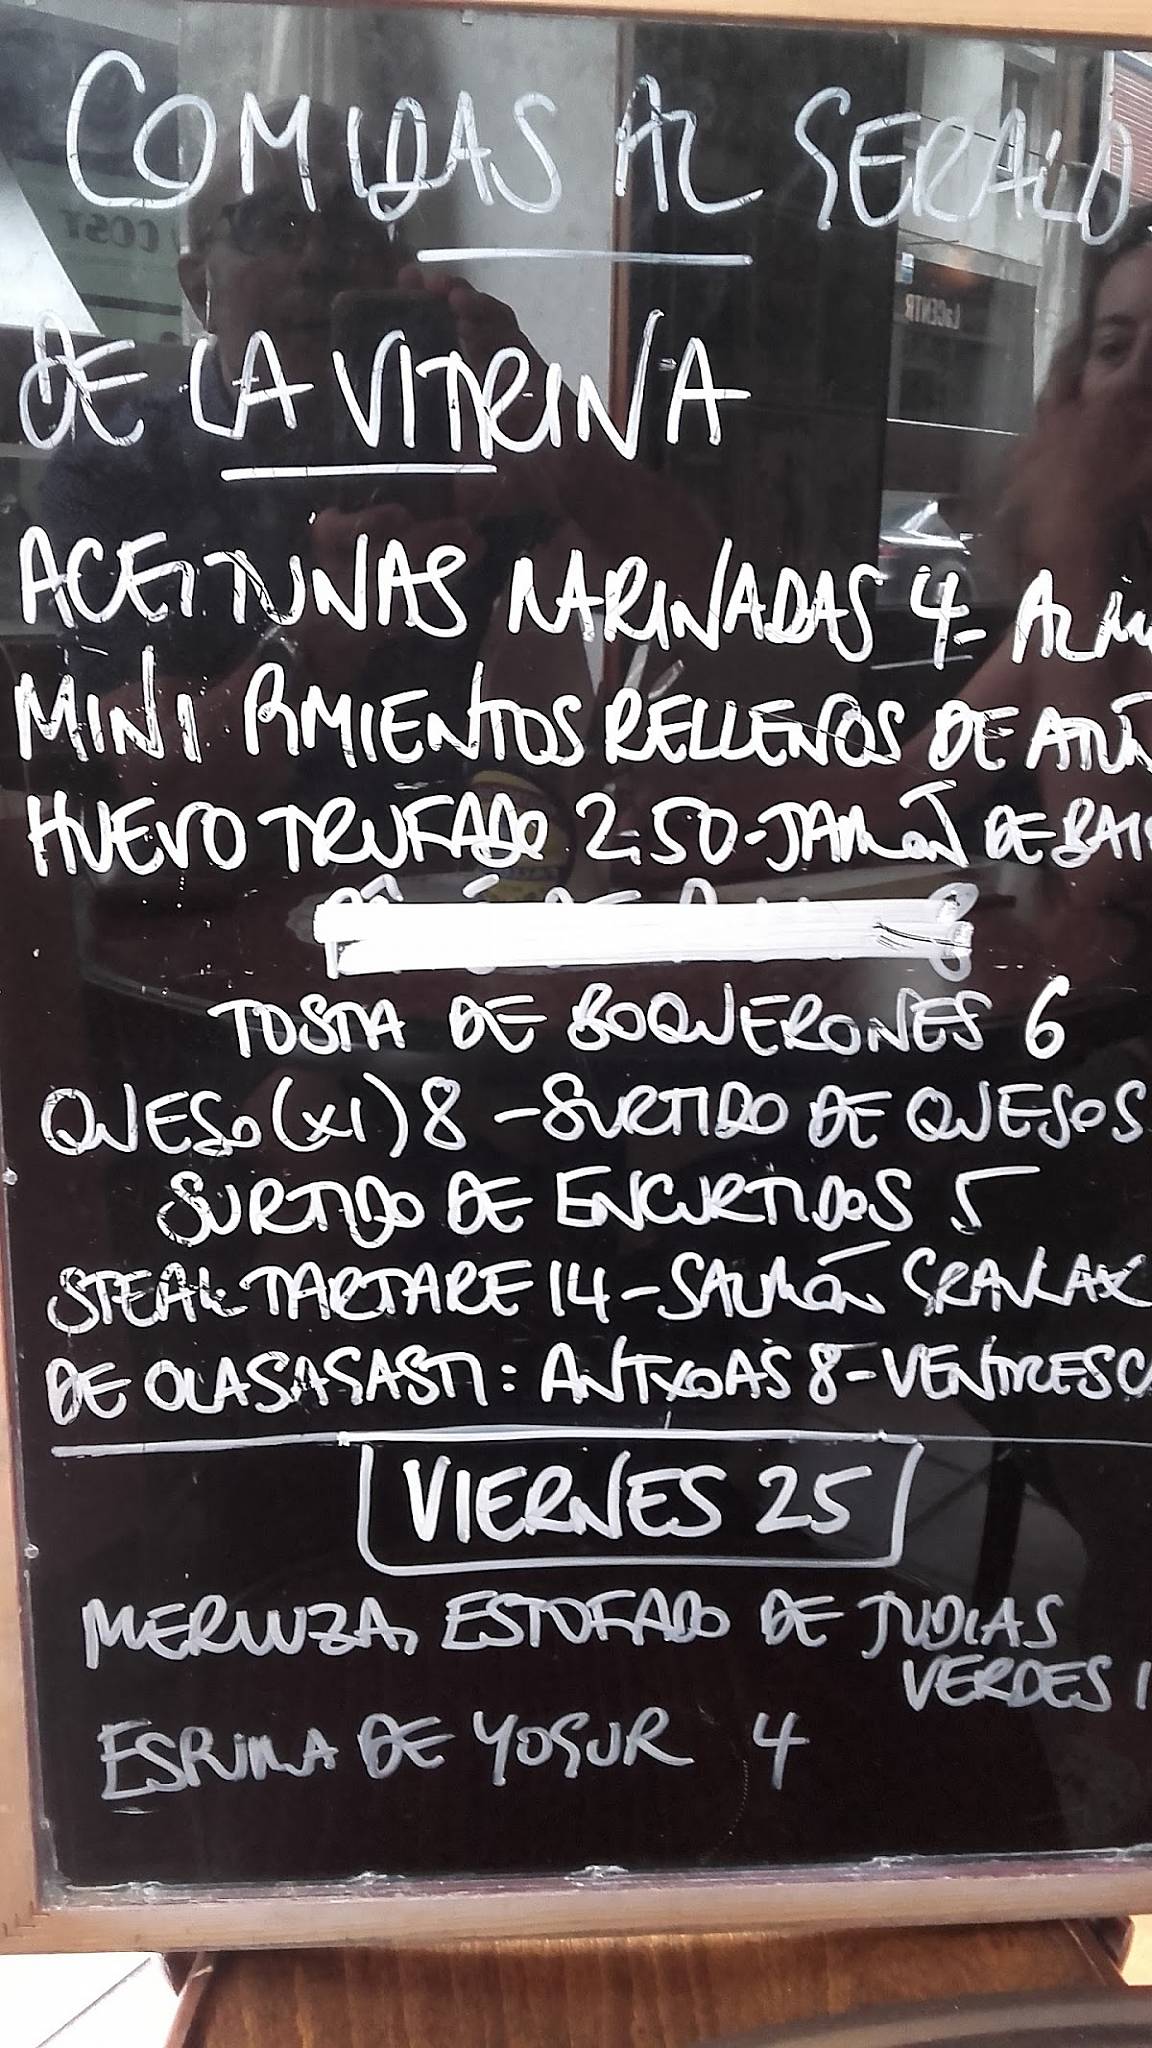 COMIDAS AL GERALD
DE LA VITRINA
ACEITUNAS MARINADAS 4-
MINI PIMIENTOS RELLENOS DE ATÚN
HUEVO TRUFADO 2,50-JAMÓN DE
TOSTA DE BOQUERONES 6
QUESO (X1) 8 - SURTIDO DE QUESOS
SURTIDO DE ENCURTIDOS 5
STEAK TARTARE 14 - SALMÓN GRAVLAX
DE OLASAGASTI: ANTXOAS 8 - VENTRESC
VIERNES 25
MERLUZA, ESTOFADO DE JUDIAS
VERDES 1
ESPUMA DE YOGUR 4